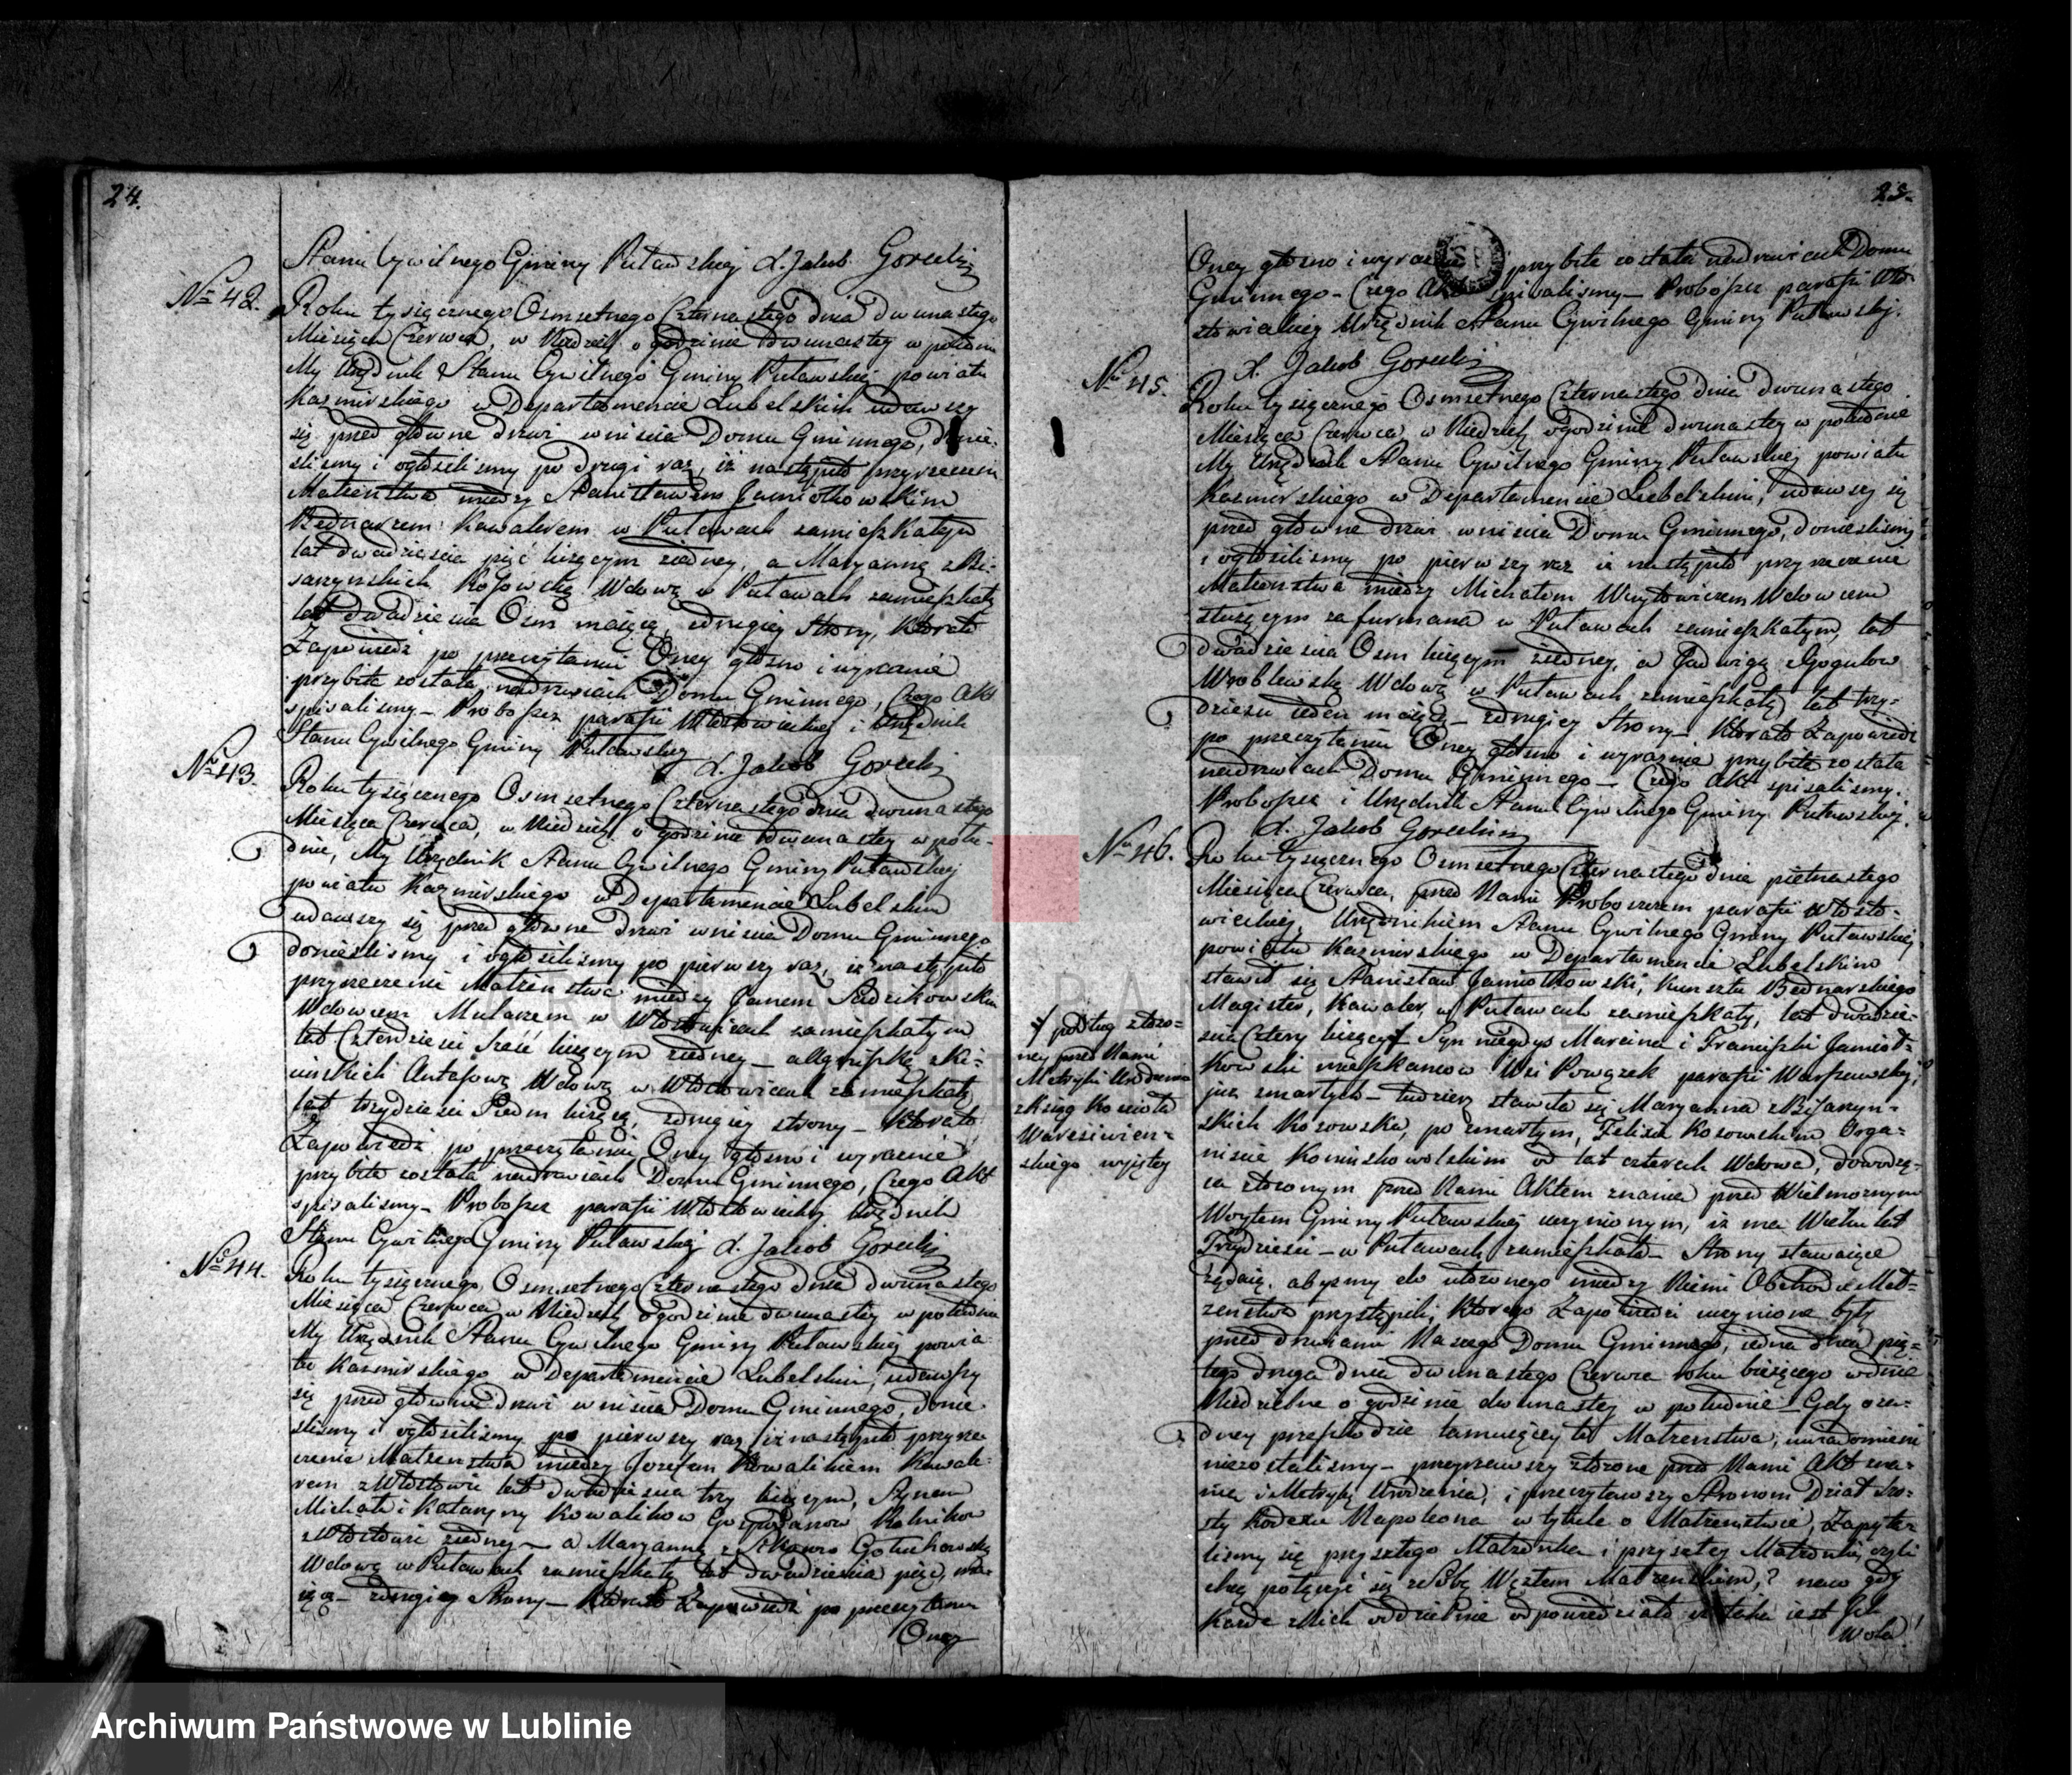 24.
Stanu Cywilnego Gminy Puławskiej X. Jakub Gorecki
Nro 42.
Roku tysiącznego Osmsetnego Czternastego dnia dwunastego
Miesiąca Czerwca, w Niedzielę o godzinie dwunastey w południe
My Urzędnik Stanu Cywilnego Gminy Puławskiej powiatu
Kazmirskiego w Departamencie Lubelskim udawszy
się przed główne drzwi wniscia Domu Gminnego, donie-
slismy i ogłosilismy po drugi raz, iż nastąpiło przyrzeczenie
Małzenstwa między Stanisławem Jamiołkowskim
Bednarzem Kawalerem w Puławach zamieszkałym
lat dwadziescia pięć liczącym zjedney, a Maryanną z
Kosowską Wdową w Puławach zamieszkałą
lat dwadziescia Osm maiącą, zdrugiey Strony, Ktorato
Zapowiedź po przeczytaniu Oney głosno i wyraznie
przybita została nadrzwiach Domu Gminnego, Czego Akt
spisalismy – Proboszcz parafii Włostowickiey i Urzędnik
Stanu Cywilnego Gminy Puławskiey X. Jakub Gorecki
Nro 43.
Roku tysiącznego Osmsetnego Czternastego dnia dwunastego
Miesiąca Czerwca, w Niedzielę o godzinie dwunastey w połu-
dnie, My Urzędnik Stanu Cywilnego Gminy Puławskiey
powiatu Kazmirskiego w Departamencie Lubelskim
udawszy się przed główne drzwi wniscia Domu Gminnego
donieslismy i ogłosilismy po pierwszy raz, iż nastąpiło
przyrzeczenie Małzenstwa między Janem
Wdowcem Mularzem w Włostowicach zamieszkałym
lat Czterdziesci Sześć liczącym zjedney – a Agnieszką
Wdową w Włostowicach zamieszkałą
lat trzydziesci Siedm liczącą, zdrugiey strony – Ktorato
Zapowiedź po przeczytaniu Oney głosno i wyraznie
przybita została nadrzwiach Domu Gminnego, Czego Akt
spisalismy – Proboszcz parafii Włostowickiey Urzędnik
Stanu Cywilnego Gminy Puławskiey X. Jakub Gorecki
Nro 44.
Roku tysiącznego Osmsetnego Czternastego dnia dwunastego
Miesiąca Czerwca w Niedzielę o godzinie dwunastey w południe
My Urzędnik Stanu Cywilnego Gminy Puławskiey powia-
tu Kazmirskiego w Departamencie Lubelskim, udawszy
się przed główne drzwi wniscia Domu Gminnego, donie-
slismy i ogłosilismy po pierwszy raz, iż nastąpiło przyrze-
czenie Małzenstwa między Jozefem Kowalikiem Kawale-
rem z Włostowic lat dwadziescia trzy liczącym, Synem
Michała i Katarzyny Kowalikow Gospodarzow Rolnikow
z Włostowic zjedney – a Maryanną z
Wdową w Puławach zamieszkałą lat dwadziescia pięć, ma-
iącą – zdrugiey Strony – Ktorato Zapowiedź po przeczytaniu
Oney
25.
Oney głosno i wyraznie przybita została nadrzwiach Domu
Gminnego – Czego Akt spisalismy – Proboszcz parafii Wło-
stowickiey Urzędnik Stanu Cywilnego Gminy Puławskiey.
X. Jakub Gorecki
Nro 45.
Roku tysiącznego Osmsetnego Czternastego dnia dwunastego
Miesiąca Czerwca w Niedzielę o godzinie dwunastey w południe
My Urzędnik Stanu Cywilnego Gminy Puławskiey powiatu
Kazmirskiego w Departamencie Lubelskim, udawszy się
przed główne drzwi wniscia Domu Gminnego, donieslismy
i ogłosilismy po pierwszy raz iż nastąpiło przyrzeczenie
Małzenstwa między Michałem Wdowcem
służącym za furmana w Puławach zamieszkałym, lat
dwadziescia Osm liczącym zjedney, a Jadwigą z Gogułow
Wroblewską Wdową w Puławach zamieszkałą lat trzy-
dziesci ieden maiącą – zdrugiey Strony – Ktorato Zapowiedź
po przeczytaniu Oney głosno i wyraznie przybita została
nadrzwiach Domu Gminnego – Czego Akt spisalismy.
Proboszcz i Urzędnik Stanu Cywilnego Gminy Puławskiey.
X. Jakub Gorecki
Nro 46.
Roku tysiącznego Osmsetnego Czternastego dnia pietnastego
Miesiąca Czerwca, przed Nami Proboszczem parafii Włosto-
wickiey, Urzędnikiem Stanu Cywilnego Gminy Puławskiey,
powiatu Kazmirskiego w Departamencie Lubelskim
stawił się Stanisław Jamiołkowski, Kunsztu Bednarskiego
Magister, Kawaler, w Puławach zamieszkały, lat dwadzie-
scia Cztery liczący Syn niegdys Marcina i Franciszki Jamioł-
kowskich mieszkancow Wsi Powązek parafii Warszawskiey,
już zmarłych – tudzież stawiła się Maryanna z
skich Kosowska, po zmarłym, Felixie Kosowskim Orga-
niscie Konińskowolskim od lat czterech Wdowa, dowodzą-
ca złożonym przed Nami Aktem znania przed Wielmoznym
Woytem Gminy Puławskiey uczynionym, iż ma Wieku lat
Trzydziesci – w Puławach zamieszkała – Strony stawaiące
żądaią, abysmy do ułożonego między Niemi Obchodu Mał-
zenstwa przystąpili, Ktorego Zapowiedzi uczynione były
przed drzwiami Naszego Domu Gminnego, iedna dnia pią-
tego druga dnia dwunastego Czerwca roku bieżącego w dnie
Niedzielne o godzinie dwunastey w południe – Gdy o ża-
dney przeszkodzie tamuiącey to Małzenstwo, uwiadomieni
niezostalismy – przeyrzawszy złożone przed Nami Akt zna-
nia i Metrykę Urodzenia, i przeczytawszy Stronom Dział szo-
sty Kodexu Napoleona w tytule o Małzenstwie, Zapyta-
lismy się przyszłego Małzonka i przyszłey Małzonki, czyli
chcą połączyć się z Sobą Węzłem Małzenskim,? na co gdy
Kazde z Nich oddzielnie odpowiedziało iż taka iest Ich
Wola
/ podług złożo-
ney przed Nami
Metryki Urodzenia
z Ksiąg Koscioła
skiego wyjętey
Archiwum Państwowe w Lublinie